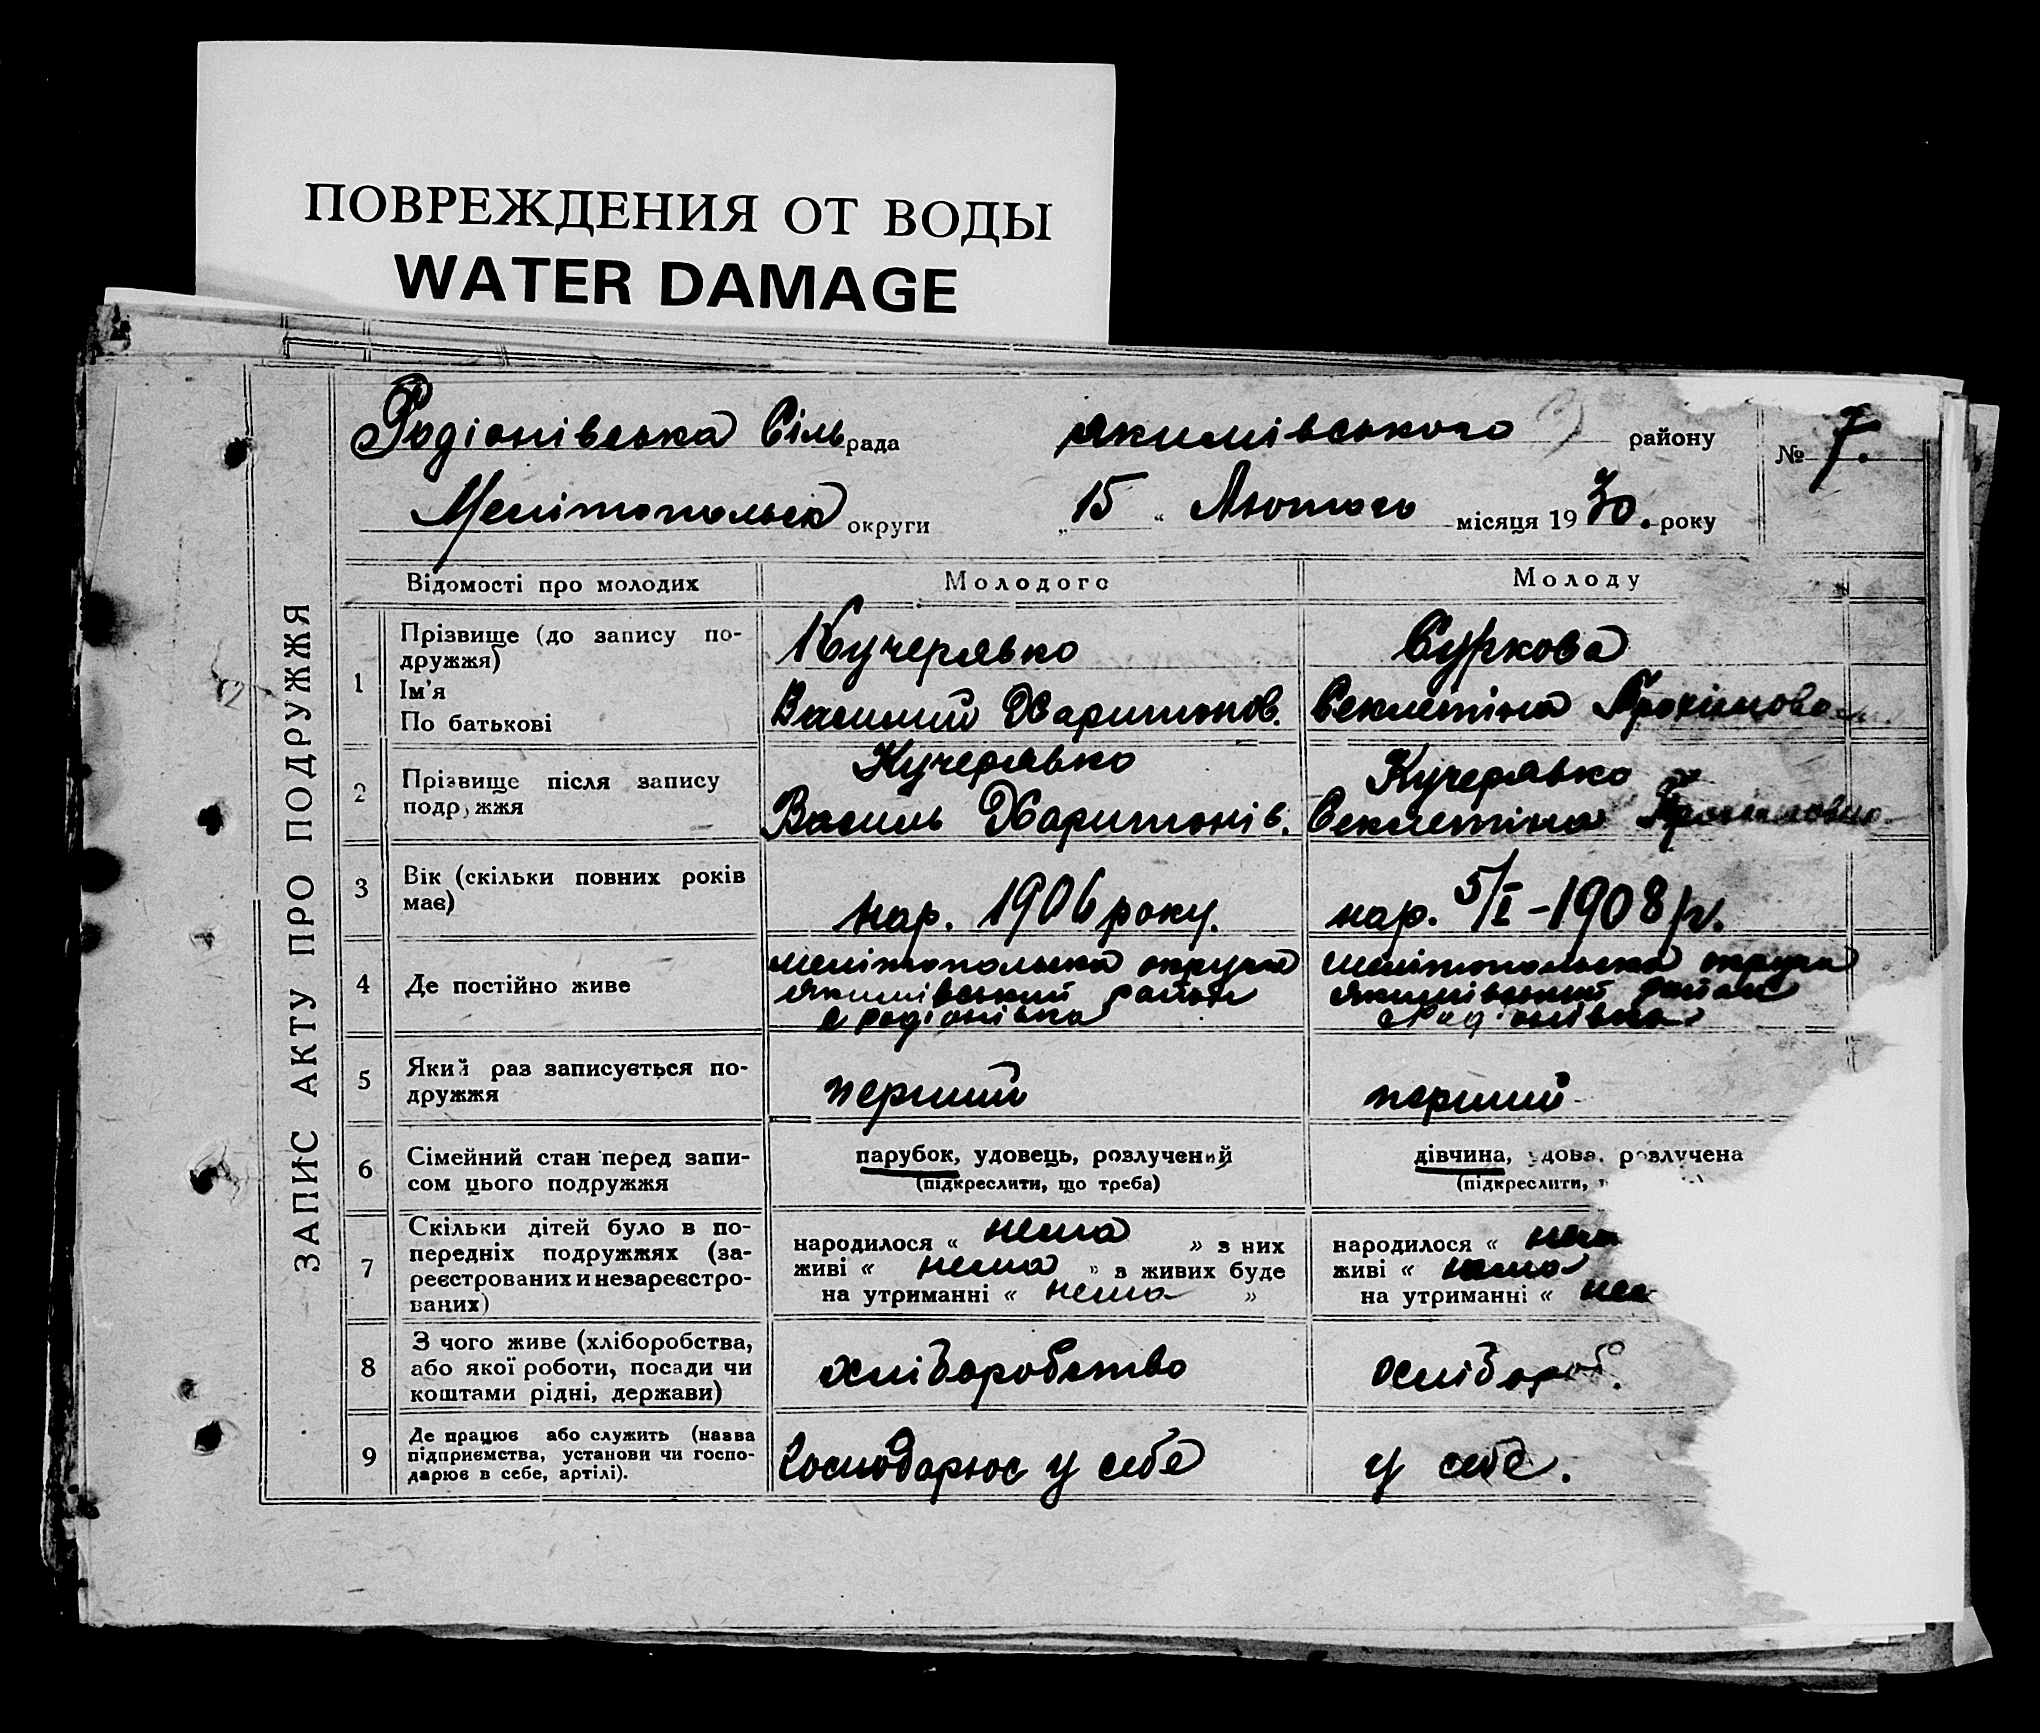 ПОВРЕЖДЕНИЯ ОТ ВОДЫ
WATER DAMAGE
ЗАПИС АКТУ ПРО ПОДРУЖЖЯ
Родіонівська Сільрада якимівського району № 7.
Мелітопольск округи „ 15 “ Лютого місяця 1930. року
Відомості про молодих Молодого Молоду
1 Прізвище (до запису по-
дружжя)
Ім'я
По батькові
Кучерявко
Василий Харитонов.
Суркова
Секлетіна
2 Прізвище після запису
подружжя
Кучерявко
Василь Харитонів.
Кучерявко
Секлетіна
3 Вік (скільки повних років
має)
нар. 1906 року.
нар. 5/I – 1908 р.
4 Де постійно живе
мелітопольска округа
якимівський район
с Родіонівка
мелітопольска округа
якимівський район
с Родіонівка
5 Який раз записується по-
дружжя
перший
перший
6 Сімейний стан перед запи-
сом цього подружжя
парубок, удовець, розлучений
(підкреслити, що треба)
дівчина, удова, розлучена
(підкреслити,
7 Скільки дітей було в по-
передніх подружжях (за-
реєстрованих и незареєстро-
ваних)
народилося « нема » з них
живі « нема » з живих буде
на утриманні « нема »
народилося « нема
живі « нема
на утриманні « нем
8 З чого живе (хліборобства,
або якої роботи, посади чи
коштами рідні, держави)
хліборобство
хлібороб.
9 Де працює або служить (назва
підприємства, установи чи госпо-
дарює в себе, артілі).
Господарює у себе
у себе.